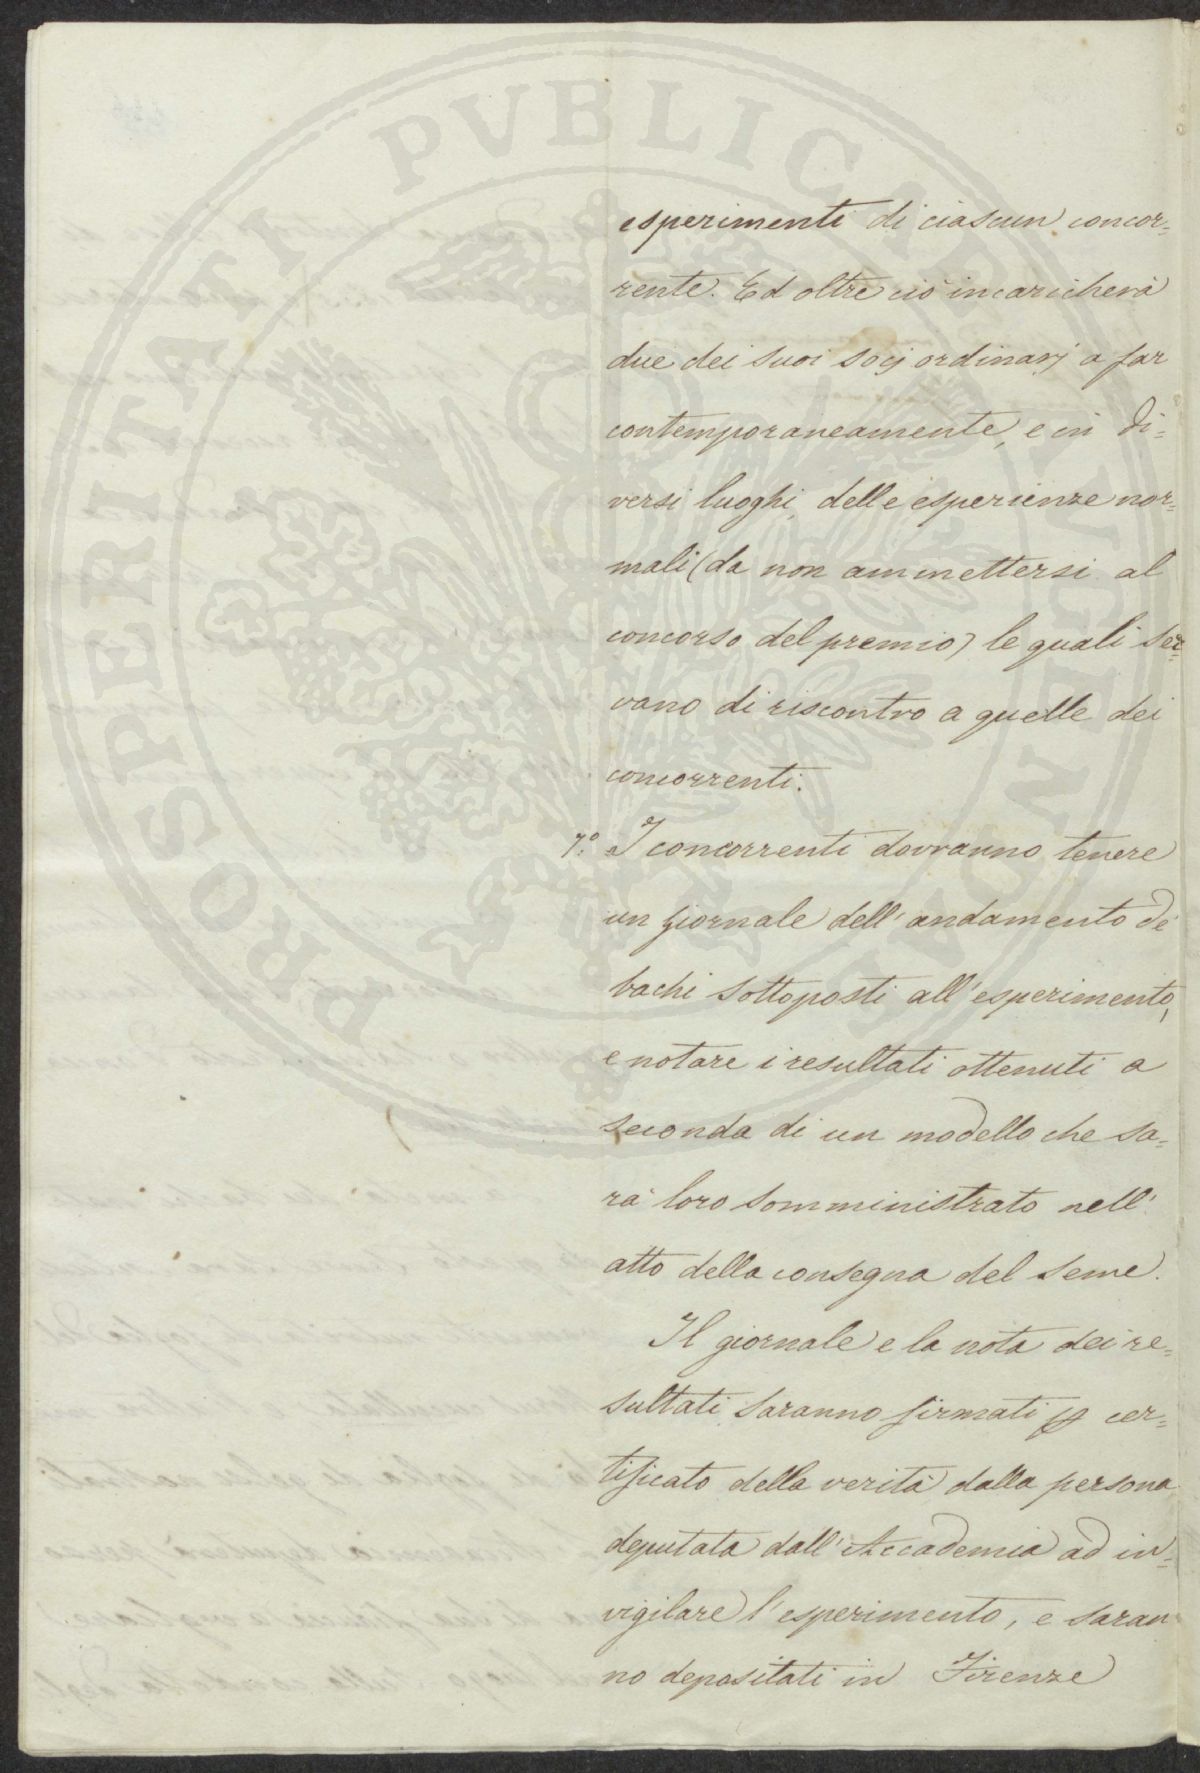 PROSPERITATI PVBLICAE AVGENDAE
esperimenti di ciascun concor=
rente. Ed oltre ciò incaricherà
due dei suoi socj ordinarj a far
contemporaneamente, e in di=
versi luoghi, delle esperienze nor=
mali (da non ammettersi al
concorso del premio) le quali ser=
vano di riscontro a quelle dei
concorrenti.
7.° I concorrenti dovranno tenere
un giornale dell'andamento de'
bachi sottoposti all'esperimento,
e notare i resultati ottenuti a
seconda di un modello che sa=
rà loro somministrato nell'
atto della consegna del seme.
Il giornale e la nota dei re=
sultati saranno firmati p cer=
tificato della verità dalla persona
deputata dall'Accademia ad in=
vigilare l'esperimento, e saran
no depositati in Firenze